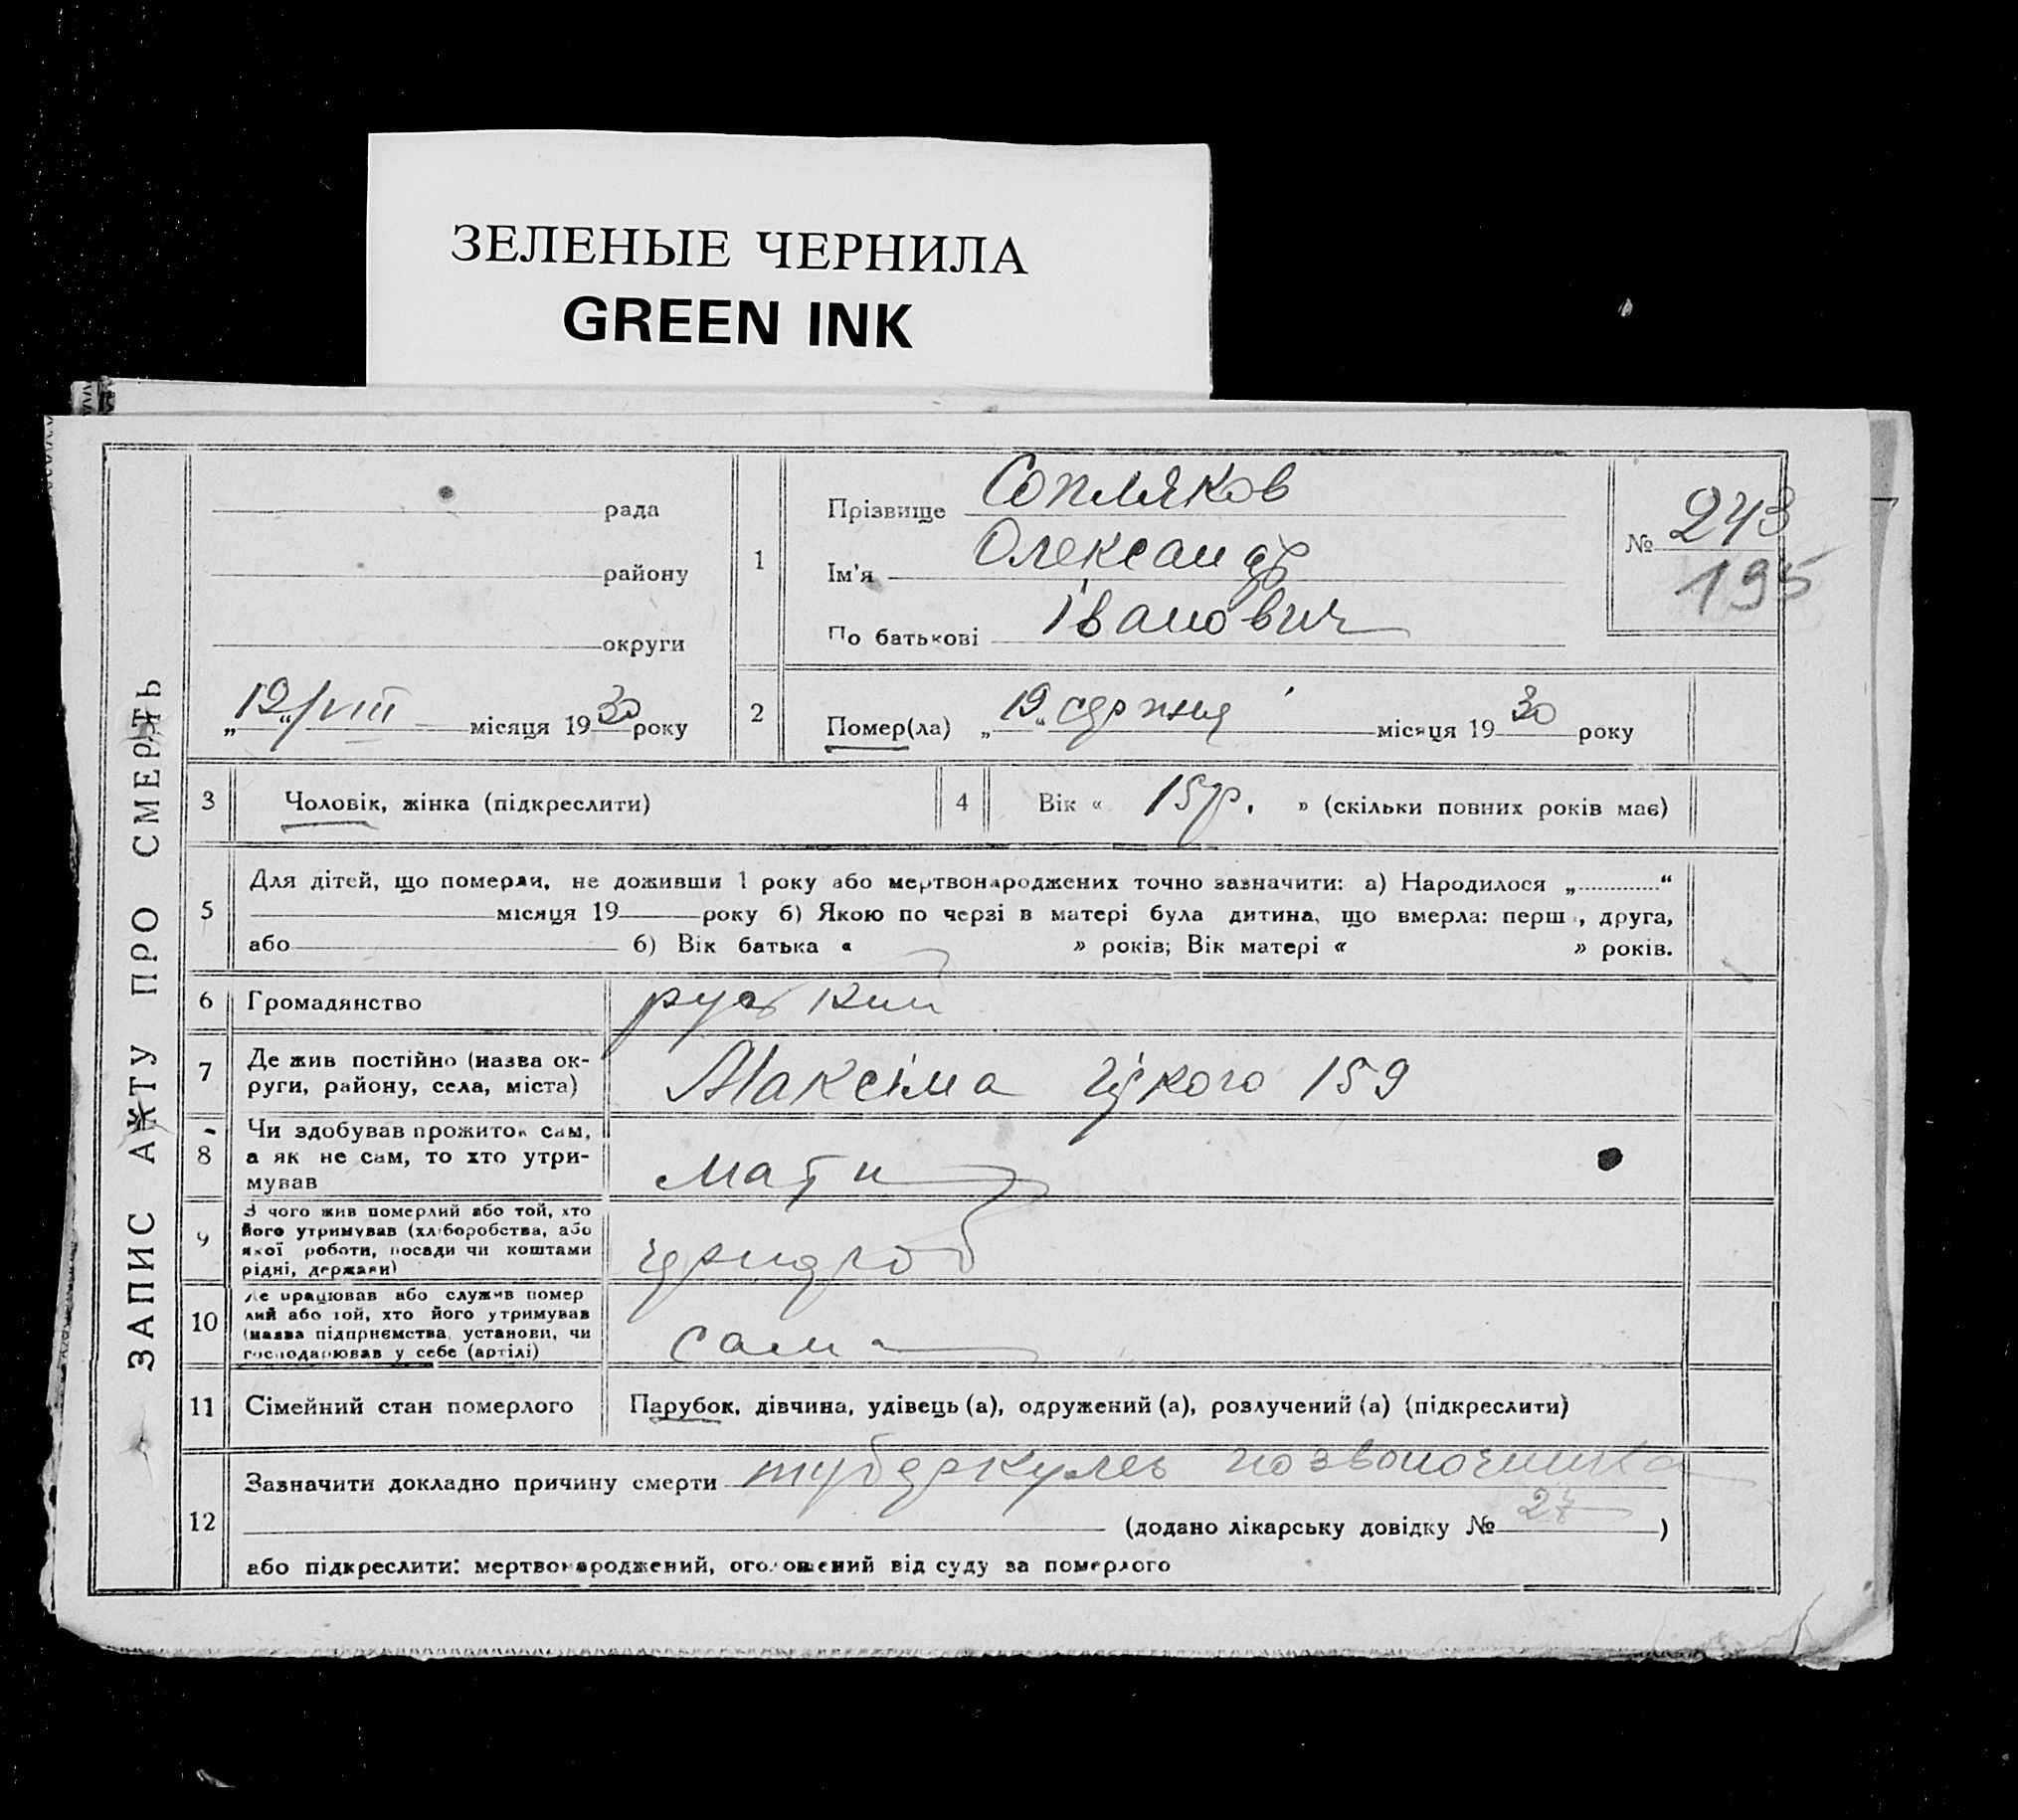 ЗЕЛЕНЫЕ ЧЕРНИЛА
GREEN INK
ЗАПИС АКТУ ПРО СМЕРТЬ
рада
району
округи
„12“/VIII місяця 1930 року
1
Прізвище Сопляков
Ім'я Олександр
По батькові Іванович
№ 243
195
2
Помер(ла) „19“ серпня місяця 1930 року
3
Чоловік, жінка (підкреслити)
4
Вік « 15 р. » (скільки повних років має)
5
Для дітей, що померли, не доживши 1 року або мертвонароджених точно зазначити: а) Народилося „ “
місяця 19 року б) Якою по черзі в матері була дитина, що вмерла: перш , друга,
або б) Вік батька « » років; Вік матері « » років.
6
Громадянство
руський
7
Де жив постійно (назва ок-
руги, району, села, міста)
Максіма Г-ького 159
8
Чи здобував прожиток сам,
а як не сам, то хто утри-
мував
мати
9
З чого жив померлий або той, хто
його утримував (хліборобства, або
якої роботи, посади чи коштами
рідні, держави)
10
Де працював або служив помер
лий або той, хто його утримував
(назва підприємства, установи, чи
господарював у себе (артілі)
сама
11
Сімейний стан померлого
Парубок, дівчина, удівець (а), одружений (а), розлучений (а) (підкреслити)
12
Зазначити докладно причину смерти туберкульоз позвоночника
(додано лікарську довідку № 27 )
або підкреслити: мертвонароджений, оголошений від суду за померлого